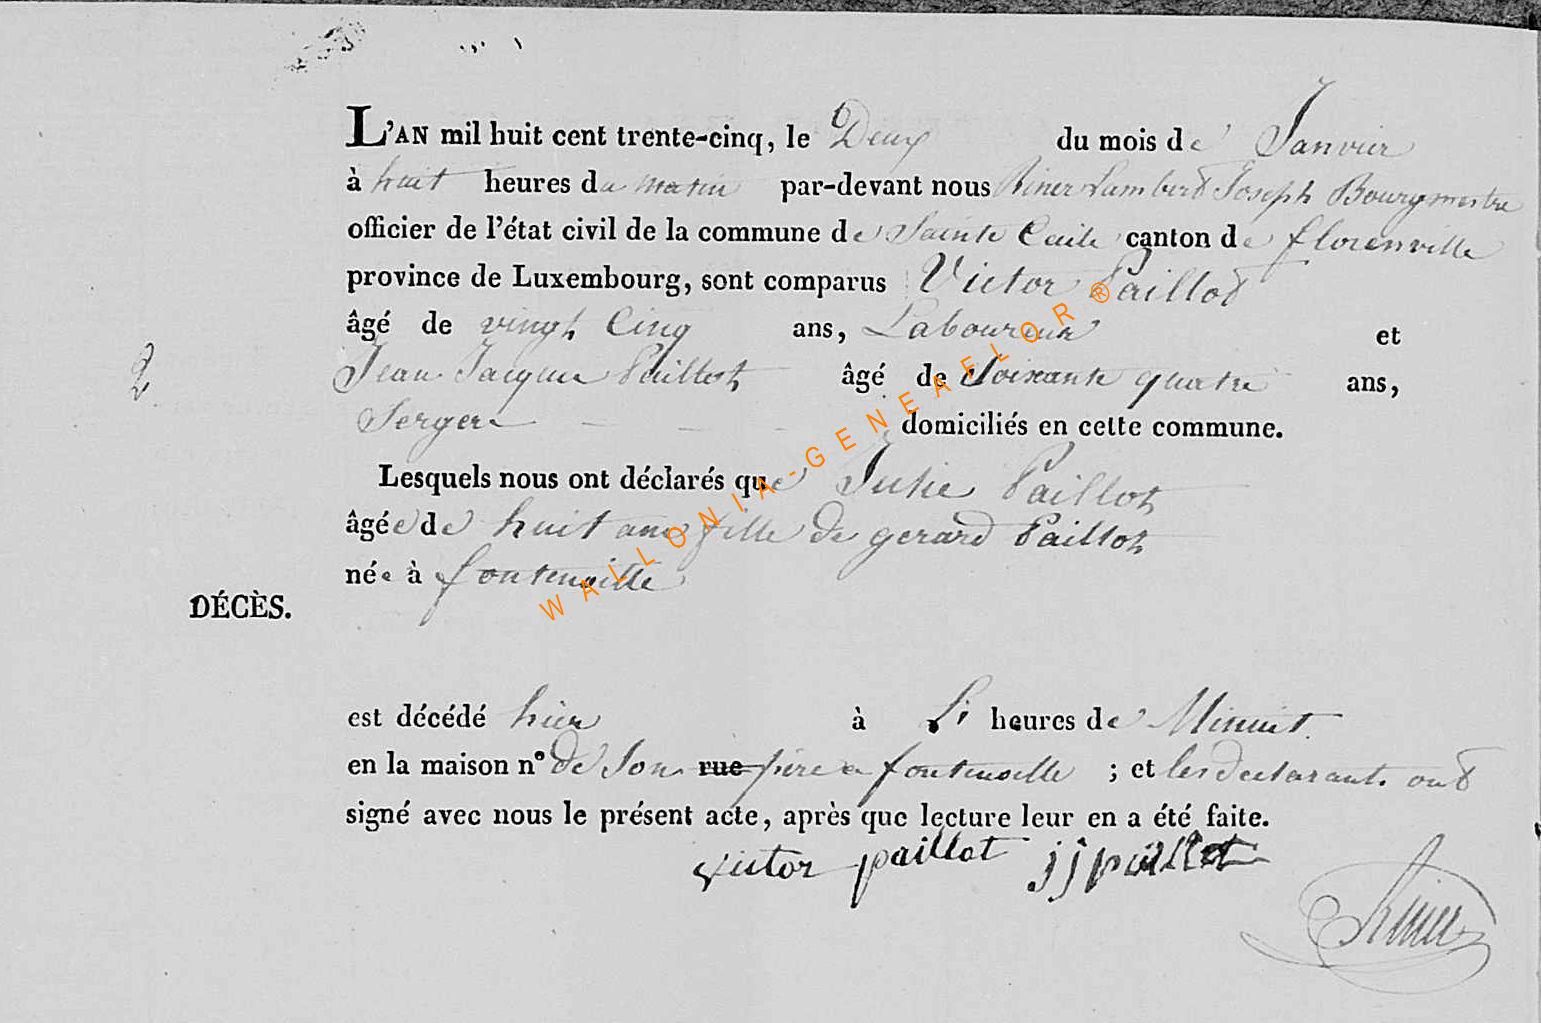 L'AN mil huit cent trente-cinq, le Deux du mois de Janvier
à huit heures du matin par-devant nous Riner Lambert Joseph Bourgmestre
officier de l'état civil de la commune de Sainte Cecile canton de florenville
province de Luxembourg, sont comparus Victor Paillot
âgé de vingt Cinq ans, Laboureur et
2
Jean Jacques Paillot âgé de Soixante quatre ans,
Serger domiciliés en cette commune.
Lesquels nous ont déclarés que Julie Paillot
âgée de huit ans fille de gerard Paillot
née à fontenoille
DÉCÈS.
est décédé hier à heures de Minuit.
en la maison n° de Son rue père a fontenoille ; et les declarants ont
signé avec nous le présent acte, après que lecture leur en a été faite.
victor paillot jj paillot
Riner
WALLONIA-GENEAFLOR®